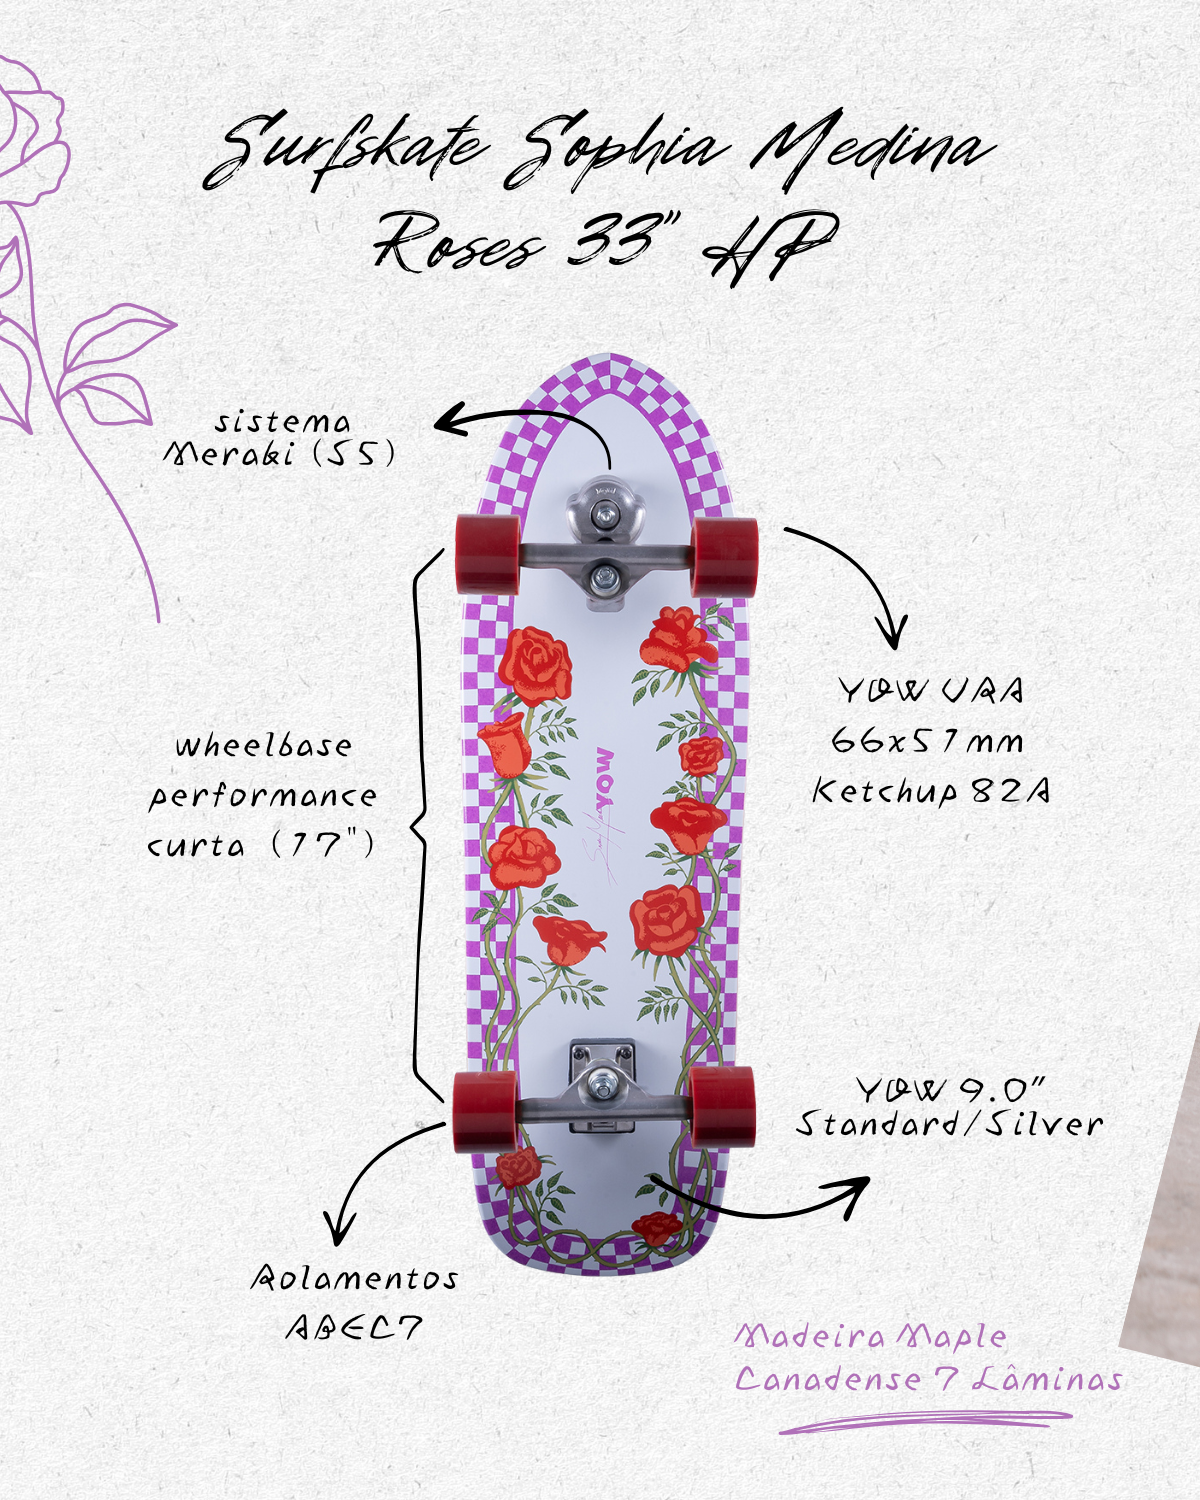 Surfskate Sophia Medina
Roses 33" HP
sistema
Meraki (S5)
YOW URA
66x51mm
Ketchup 82A
wheelbase
performance
curta (17")
YOW
YOW 9.0"
Standard/Silver
Rolamentos
ABEC7
Madeira Maple
Canadense 7 Lâminas